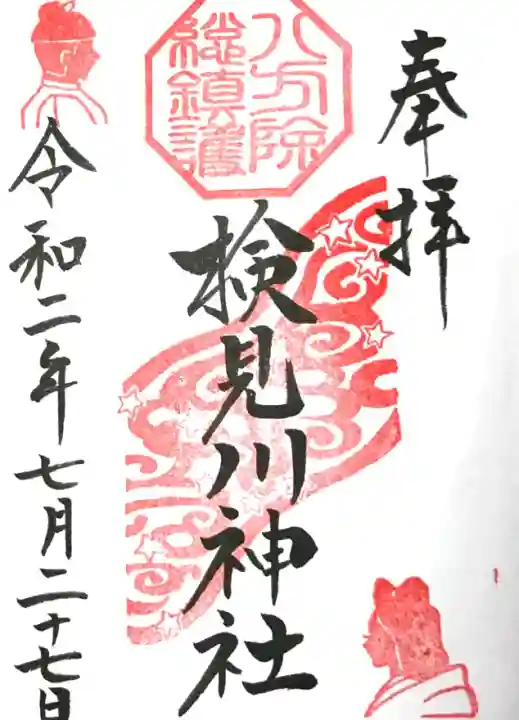 奉拝
八方除
総鎮護
検見川神社
令和二年七月二十七日